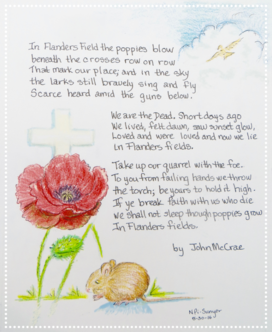 In Flanders Field the poppies blow
beneath the crosses row on row
That mark our place, and in the sky
the larks still bravely sing and fly
Scarce heard amid the guns below.
We are the Dead. Short days ago
We lived, felt dawn, saw sunset glow,
Loved and were loved and now we lie
in Flanders fields.
Take up our quarrel with the foe.
To you from failing hands we throw
the torch; be yours to hold it high.
If ye break faith with us who die
We shall not sleep though poppies grow
In Flanders fields.
by John McCrae